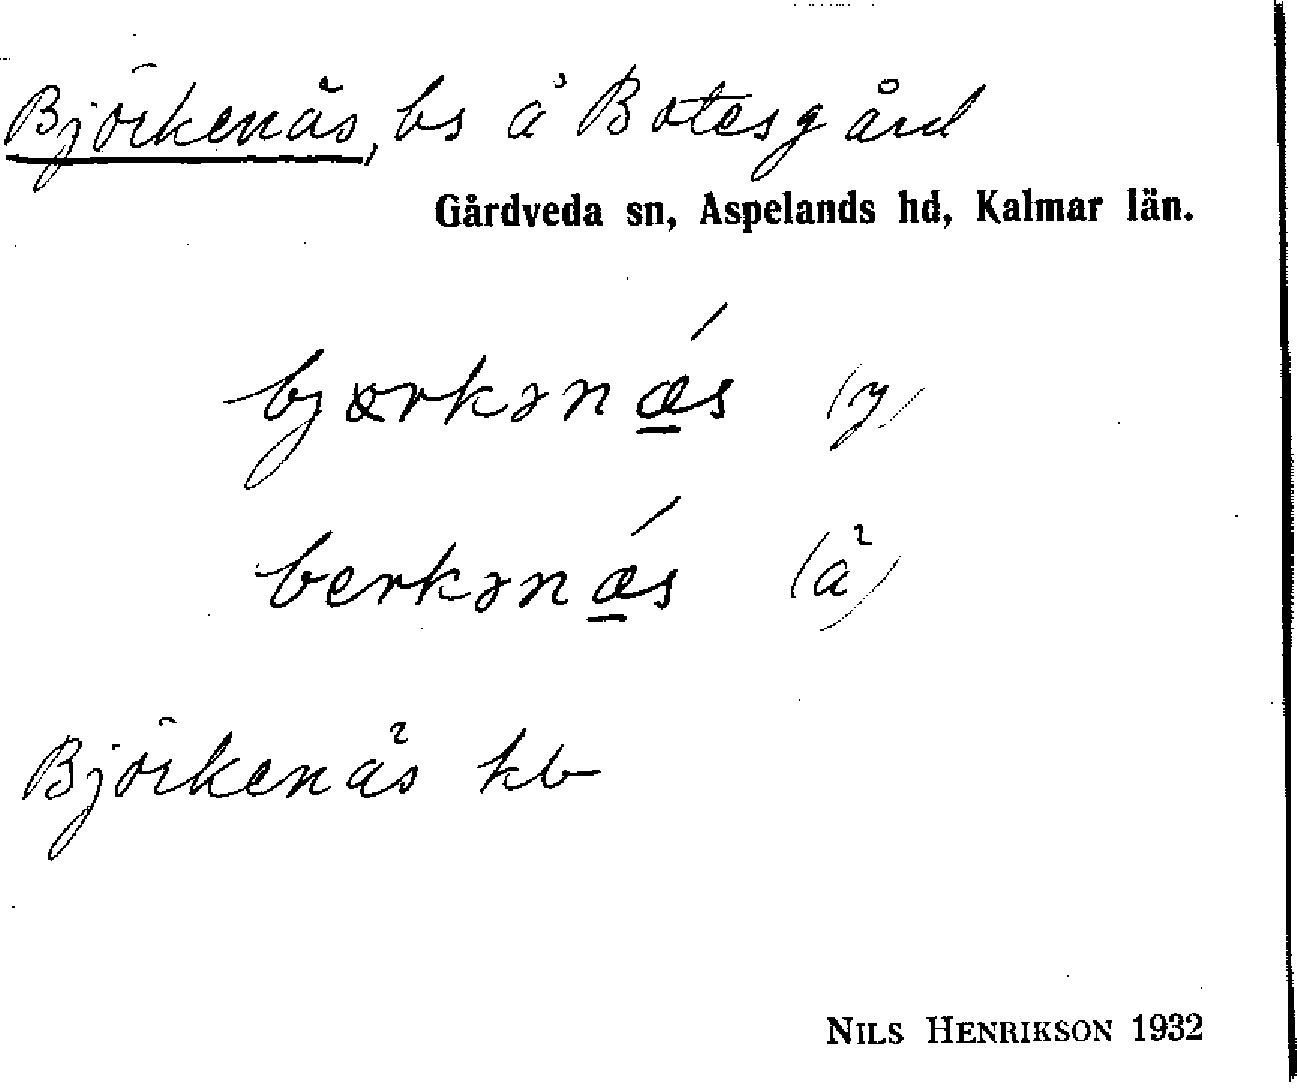 Björkenäs, bs å Botesgård
Gårdveda sn, Aspelands hd, Kalmar län.
bjørkənǽs (y)
berkənǽs (ä)
Björkenäs kb
NILS HENRIKSON 1932